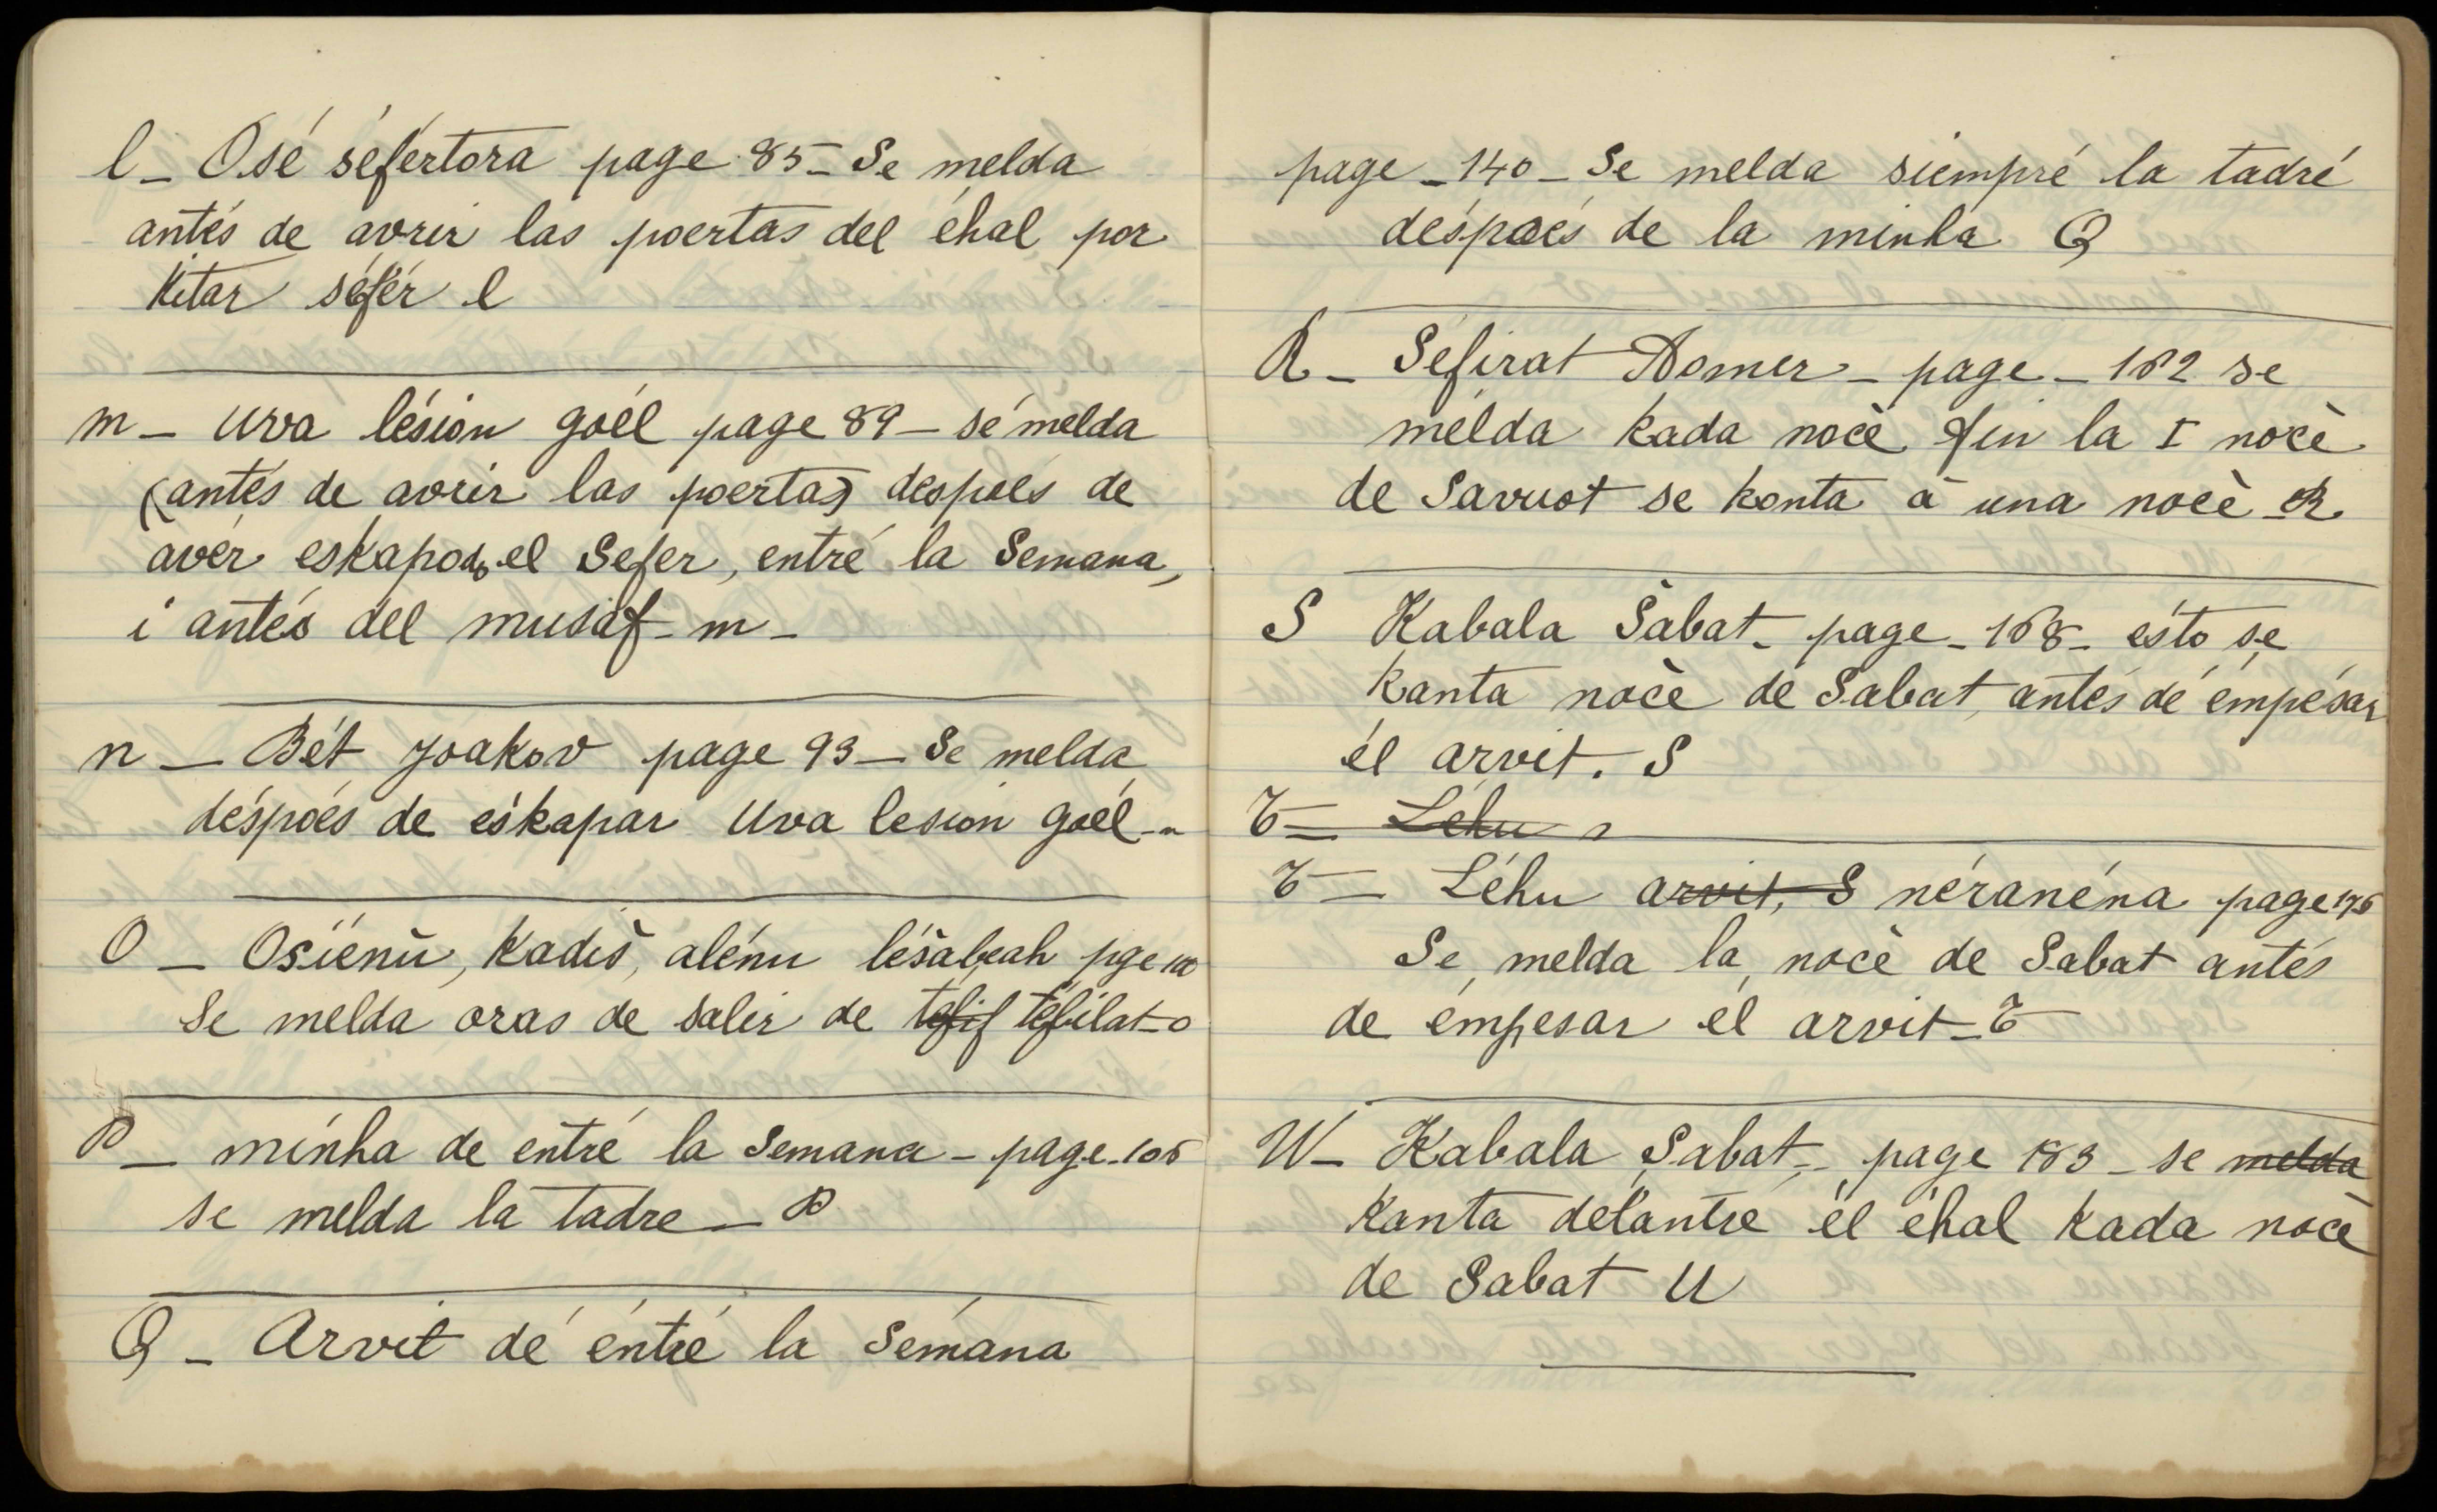 l - Osé séfertora page 85 - Se melda
antés de avrir las poertas del éhal por
kitar séfér l
m - Uva lésion goél page 89 - sé melda
(antés de avrir las poertas) despoés de
avér eskapado el Sefer, entré la Semana,
i antés del musaf - m -
n - Bét Yoakov page 93 - Se melda
déspoés de eskapar Uva lesion goél - n
O - Osiénu, Kadiš, alénu léšabeah pge 100
Se melda oras de salir de tefif téfilat - o
P - minha de entré la Semana - page - 106
se melda la tadre - P
Q - Arvit dé éntré la Sémana
page - 140 - Se melda siempré la tadré
déspoés de la minha Q
R - Séfirat Aomer - page - 162 se
mélda kada nocè fin la I nocè
de Savuot se konta a una nocè - R
S Kabala Šabat - page - 168 - ésto se
kanta nocè dé Sabat, antés dé émpésar
él arvit. S
T = Léhu
T = Léhu arvit, S néranéna page 176
Se melda la nocè de Sabat antés
de émpesar él arvit - T
W - Kabala Sabat - page 183 - se melda
kanta délantré él éhal kada nocè
de Sabat U